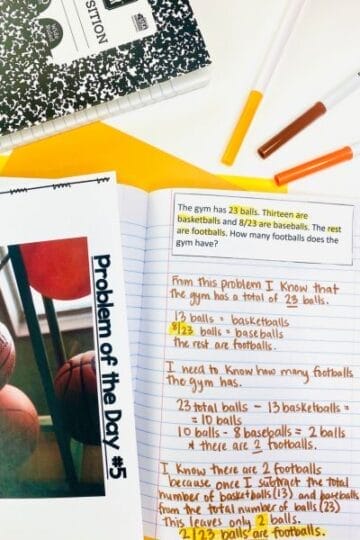 POSITION
Problem of the Day #5
The gym has 23 balls. Thirteen are
basketballs and 8/23 are baseballs. The rest
are footballs. How many footballs does the
gym have?
From this problem I know that
the gym has a total of 23 balls.
13 balls = basketballs
8/23 balls = baseballs
the rest are footballs.
I need to know how many footballs
the gym has.
23 total balls - 13 basketballs =
= 10 balls
10 balls - 8 baseballs = 2 balls
* there are 2 footballs.
I know there are 2 footballs
because once I subtract the total
number of basketballs (13) and baseballs
from the total number of balls (23)
This leaves only 2 balls.
2/23 balls are footballs.